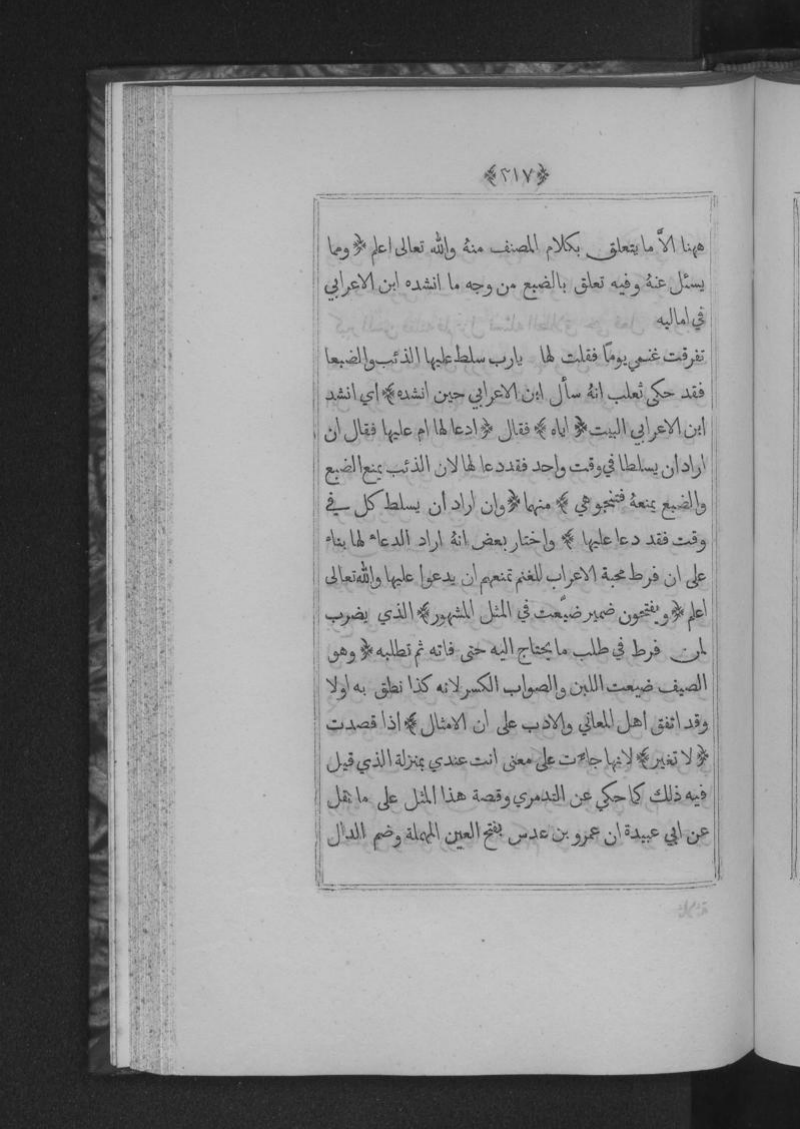 ﴿٢١٧﴾
ههنا الاّ ما يتعلق بكلام المصنف منهُ والله تعالى اعلم ﴿ ومما
يسئل عنهُ وفيه تعلق بالضبع من وجه ما انشده ابن الاعرابي
في اماليه
تفرقت غنمي يومًا فقلت لها يارب سلط عليها الذئب والضبعا
فقد حكى ثعلب انهُ سأل ابن الاعرابي حين انشده ﴾ اي انشد
ابن الاعرابي البيت ﴿ اياه ﴾ فقال ﴿ ادعا لها ام عليها فقال ان
اراد ان يسلطا في وقت واحد فقد دعا لها لان الذئب يمنع الضبع
والضبع يمنعهُ فتنجو هي ﴾ منهما ﴿ وان اراد أن يسلط كل في
وقت فقد دعا عليها ﴾ واختار بعض انهُ اراد الدعاء لها بناء
على ان فرط محبة الاعراب للغنم تمنعهم ان يدعوا عليها والله تعالى
اعلم ﴿ ويفتحون ضمير ضيّعت في المثل المشهور ﴾ الذي يضرب
لمن فرط في طلب ما يحتاج اليه حتى فاته ثم تطلبه ﴿ وهو
الصيف ضيعت اللبن والصواب الكسر لانه كذا نطق به اولا
وقد اتفق اهل المعاني والادب على ان الامثال ﴾ اذا قصدت
﴿ لا تغير ﴾ لانها جاءت على معنى انت عندي بمنزلة الذي قيل
فيه ذلك كما حكي عن التدمري وقصة هذا المثل على ما نقل
عن ابي عبيدة ان عمرو بن عدس بفتح العين المهملة وضم الدال